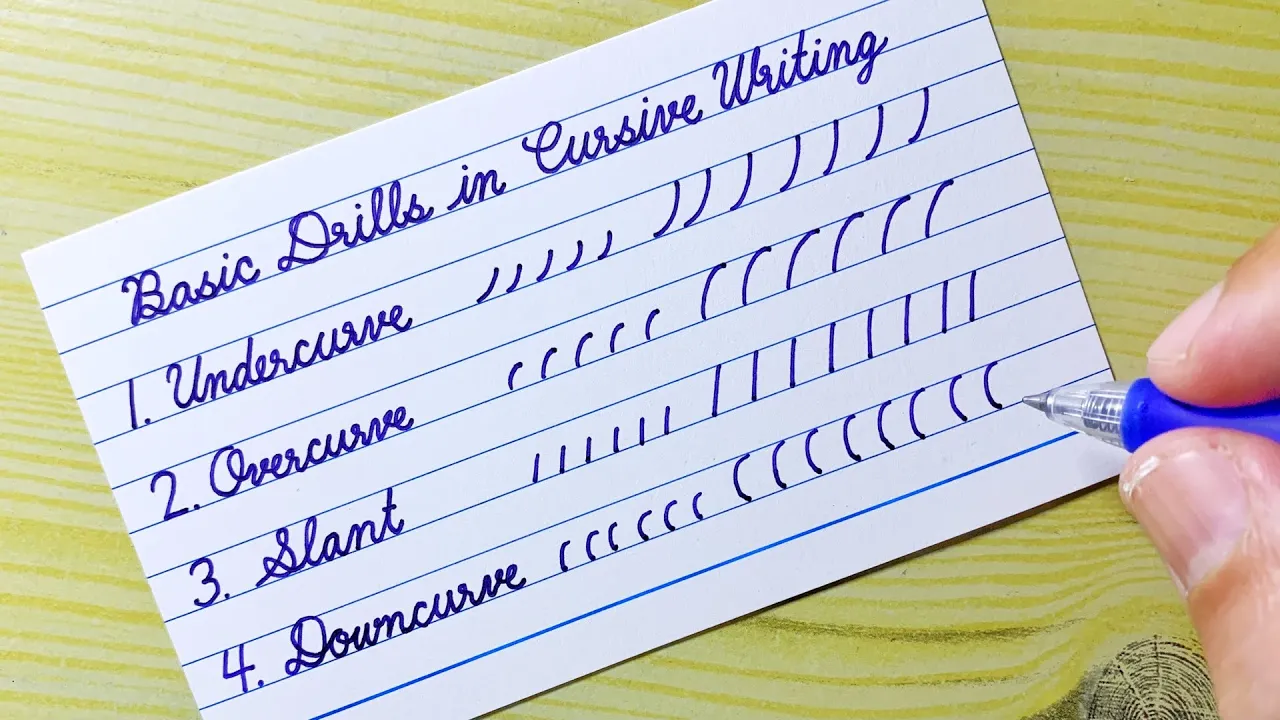 Basic Drills in Cursive Writing
1. Undercurve
2. Overcurve
3. Slant
4. Downcurve